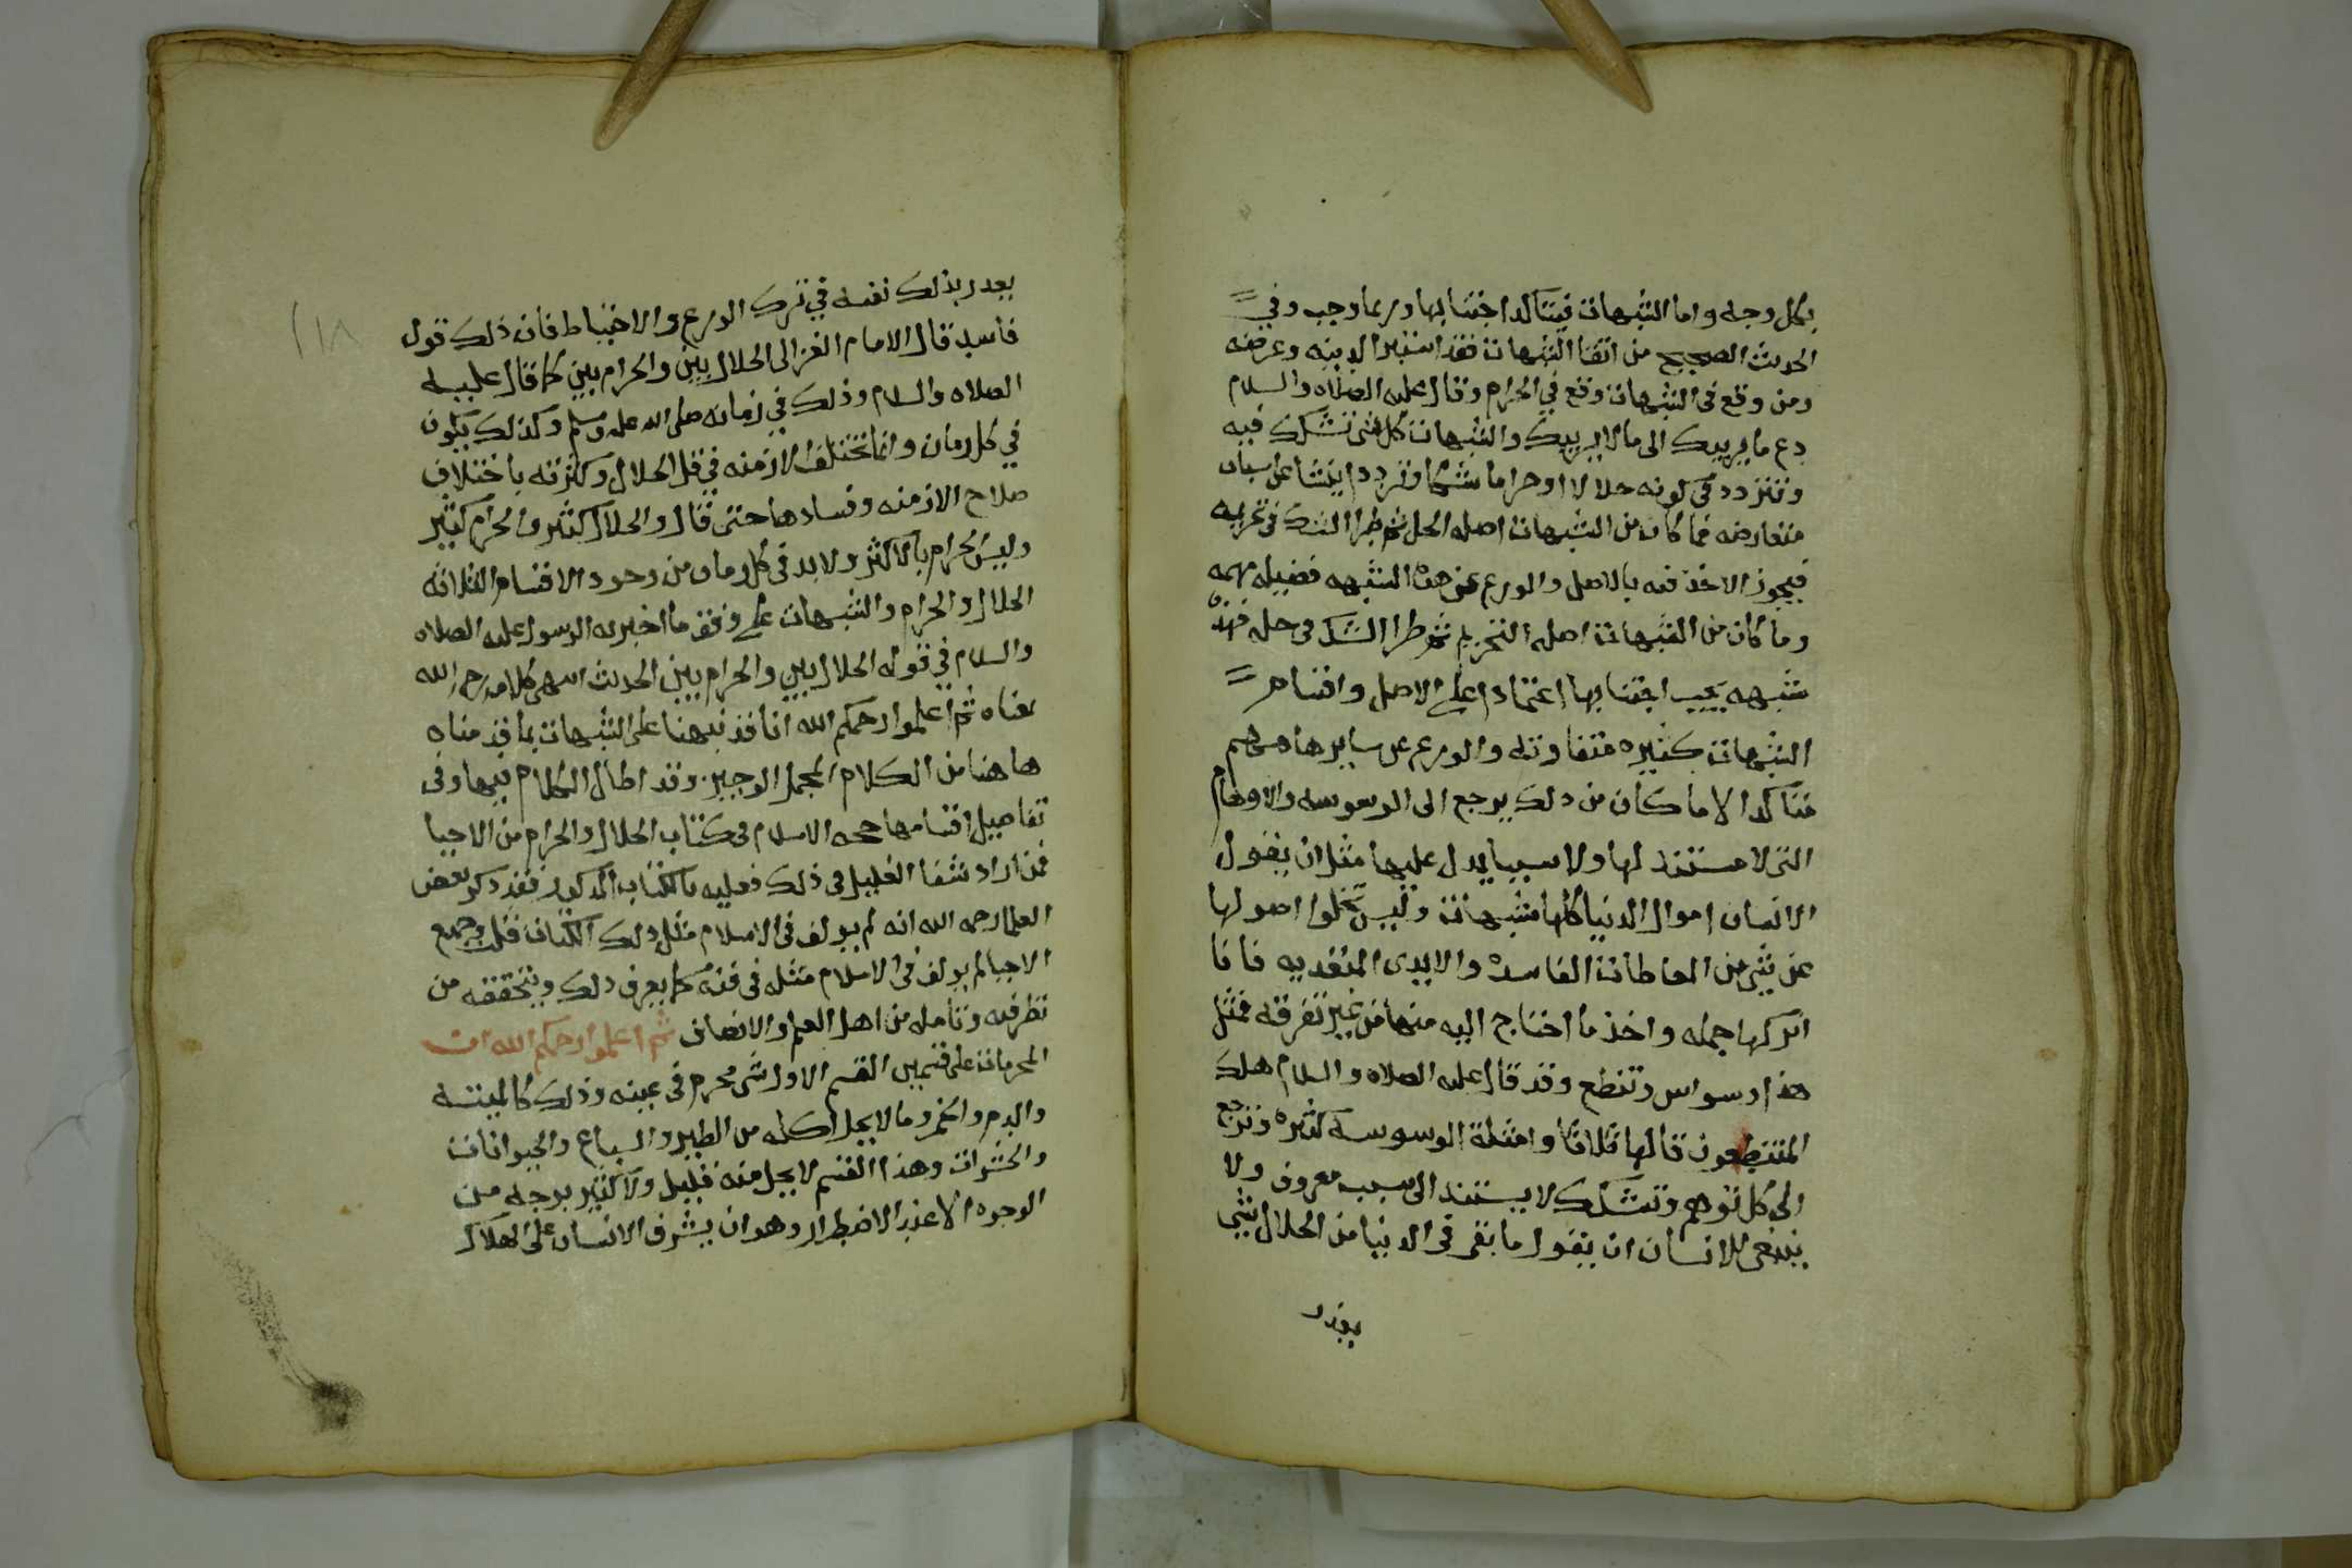 بكل وجه واما الشبهات فيتاكد اجتنابها وربما وجب وفي
الحديث الصحيح من اتقا الشبهات فقد استبرا لدينه وعرضه
ومن وقع في الشبهات وقع في الحرام وقال عليه الصلاه والسلام
دع ما يريبك الى ما لا يريبك والشبهات كل شي تشكك فيه
وتتردد في كونه حلالا او حراما شكا وتردد اينشا عن اسباب
متعارضه فما كان من الشبهات اصله الحل ثم طرا الشك في تحريمه
فيجوز الاخذ فيه بالاصل والورع عن هذه الشبهه فضيله مهمه
وما كان من الشبهات اصله التحريم ثم طرا الشك في حله فهذه
شبهه يجب اجتنابها اعتمادا على الاصل واقسام
الشبهات كثيره متفاوته والورع عن سايرها مهم
متاكد الا ما كان من ذلك يرجع الى الوسوسه والاوهام
التي لا مستند لها ولا سببا يدل عليها مثل ان يقول
الانسان اموال الدنيا كلها مشبهات وليس تخلوا اصولها
عن شي من المعاطات الفاسده والايدي المتعديه فانا
اتركها جمله واخذ ما احتاج اليه منها من غير تفرقه فمثل
هذا وسواس وتنطع وقد قال عليه الصلاه والسلام هلك
المتنطعون قالها ثلاثا وامثلة الوسوسه كثيره وترجع
الى كل توهم وتشكك لا يستند الى سبب معروف ولا
ينبغي للانسان ان يقول ما بقي في الدنيا من الحلال شي
يعذر
١١٨
يعذر بذلك نفسه في ترك الورع والاحتياط فان ذلك قول
فاسد قال الامام الغزالي الحلال بين والحرام بين كما قال عليه
الصلاه والسلام وذلك في زمانه صلى الله عليه وسلم وكذلك يكون
في كل زمان وانما تختلف الازمنه في قل الحلال وكثرته باختلاف
صلاح الازمنه وفسادها حتى قال والحلال كثير والحرام كثير
وليس الحرام بالاكثر ولا بد في كل زمان من وجود الاقسام الثلاثه
الحلال والحرام والشبهات على وفق ما اخبر به الرسول عليه الصلاه
والسلام في قوله الحلال بين والحرام بين الحديث انتهى كلامه رحمه الله
بمعناه ثم اعلموا رحمكم الله انا قد نبهنا على الشبهات بما قدمناه
هاهنا من الكلام المجمل الوجيز وقد اطال الكلام فيها وفي
تفاصيل اقسامها حجه الاسلام في كتاب الحلال والحرام من الاحيا
فمن اراد شفا الغليل في ذلك فعليه بالكتاب المذكور فقد ذكر بعض
العلما رحمه الله انه لم يولف في الاسلام مثل ذلك الكتاب قلت وجميع
الاحيا لم يولف في الاسلام مثله في فنه كما يعرف ذلك ويتحققه من
نظر فيه وتامله من اهل العلم والانصاف ثم اعلموا رحمكم الله ان
المحرمات على قسمين القسم الاول شي محرم في عينه وذلك كالميته
والدم والخمر وما لا يحل اكله من الطير والسباع والحيوانات
والحشرات وهذا القسم لا يحل منه قليل ولا كثير بوجه من
الوجوه الا عند الاضطرار وهو ان يشرف الانسان على الهلاك